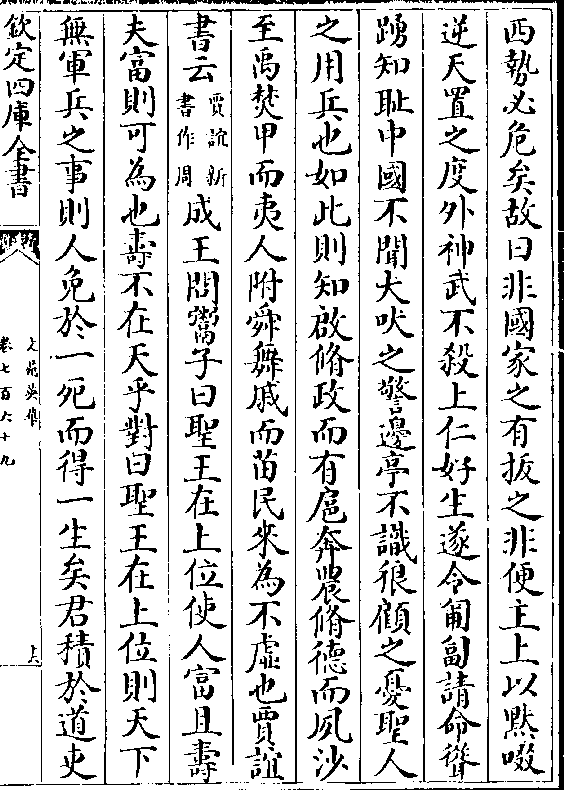 西勢必危矣故曰非國家之有扳之非便主上以黙啜
逆天置之度外神武不殺上仁好生遂令匍匐請命聳
踴知耻中國不聞犬吠之警邊亭不識狼顧之憂聖人
之用兵也如此則知啟脩政而有扈奔農脩德而夙沙
至禹焚甲而夷人附舜舞戚而苗民來為不虛也賈誼
書云賈誼新書作周成王問鬻子曰聖王在上位使人富且壽
夫富則可為也壽不在天乎對曰聖王在上位則天下
無軍兵之事則人免於一死而得一生矣君積於道吏
欽定四庫全書
文苑英華
卷七百六十九